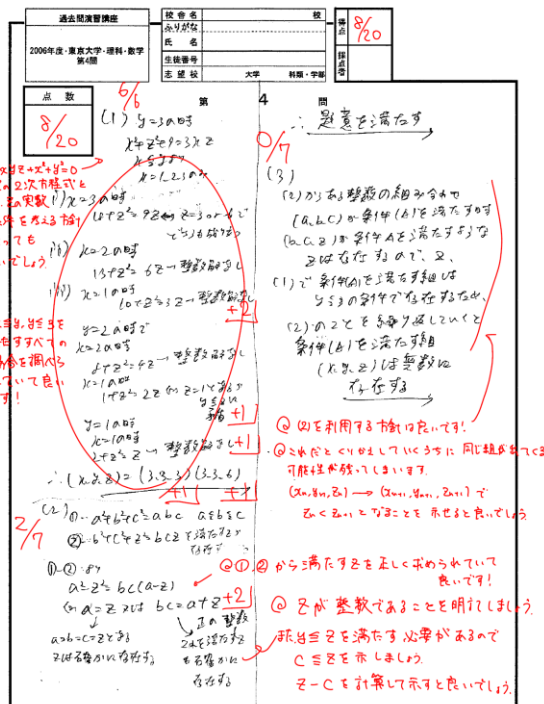 過去問演習講座
2006年度・東京大学・理科・数学
第4問
校舎名
校
ふりがな
氏名
生徒番号
志望校
大学
科類・学部
得点
8/20
採点者
点数
8/20
第 4 問
6/6
(1) y=3の時
x²+z²+9=3xz
x=1,2,3のみ
i) x=3の時
18+z²=9z ⇔ z=3or6で
ii) x=2の時
13+z²=6z → 整数解なし
iii) x=1の時
10+z²=3z → 整数解なし
+2
y=2の時で
x=2の時
8+z²=4z → 整数解なし
x=1の時
+1
y=1の時
x=1の時
2+z²=z → 整数解なし
+1
∴(x,y,z)=(3,3,3)(3,3,6)
+1
+1
2/7
(2) ①…a²+b²+c²=abc a≦b≦c
②…b²+c²+z²=bcz を満たすzが
存在す
①-②より
a²-z²=bc(a-z)
⇔ a=z 又は bc=a+z
+2
正の整数
a=b=c=zとき
zは確かに存在する
zを満たすz
も確かに
存在する
∴ 題意を満たす
0/7
(3)
(2)からある整数の組み合わせ
(a,b,c)が条件(A)を満たす時
(b,c,z)が条件Aを満たすような
zは存在するので、
(1)で条件(A)を満たす組は
y≦3の条件で存在するため、
(2)のことを繰り返していくと
条件(A)を満たす組
(x,y,z)は無数に
存在する
◎(2)を利用する方針は良いです!
◎これだとくりかえしていくうちに同じ組が出てくる
可能性が残ってしまいます。
(xn,yn,zn)→(xn+1,yn+1,zn+1)で
zn<zn+1となることを示せると良いでしょう
◎①,②から満たすzを正しく求められていて
良いです!
◎zが整数であることを明記しましょう.
また y≦zを満たす必要があるので
c≦zを示しましょう.
z-cを計算して示すと良いでしょう.